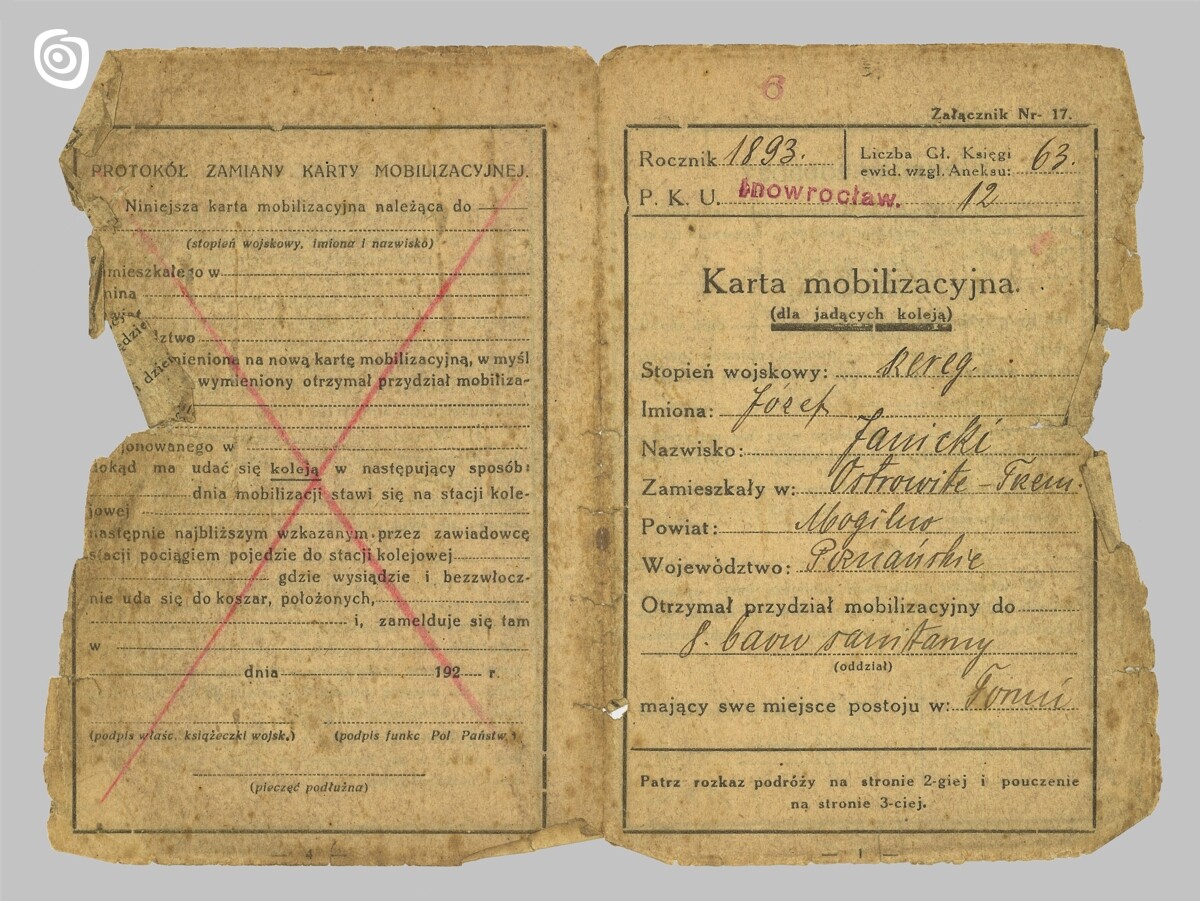 PROTOKÓŁ ZAMIANY KARTY MOBILIZACYJNEJ.
Niniejsza karta mobilizacyjna należąca do
(stopień wojskowy, imiona i nazwisko)
mieszkałego w
mina
ztwo
mieniona na nową kartę mobilizacyjną, w myśl
wymieniony otrzymał przydział mobiliza-
jonowanego w
dokąd ma udać się koleją w następujący sposób:
dnia mobilizacji stawi się na stacji kole-
jowej
następnie najbliższym wzkazanym przez zawiadowcę
stacji pociągiem pojedzie do stacji kolejowej
gdzie wysiądzie i bezzwłocz-
nie uda się do koszar, położonych,
i, zamelduje się tam
w
dnia 192 r.
(podpis właśc. książeczki wojsk.) (podpis funkc Pol Państw.)
(pieczęć podłużna)
— 4 —
6
Załącznik Nr- 17.
Rocznik 1893. Liczba Gł. Księgi
ewid. wzgl. Aneksu: 63.
P. K. U. Inowrocław. 12
Karta mobilizacyjna.
(dla jadących koleją)
Stopień wojskowy: szereg.
Imiona: Józef
Nazwisko: Janicki
Zamieszkały w: Ostrowite - Trem.
Powiat: Mogilno
Województwo: Poznańskie
Otrzymał przydział mobilizacyjny do
8. baon sanitarny
(oddział)
mający swe miejsce postoju w: Toruń
Patrz rozkaz podróży na stronie 2-giej i pouczenie
na stronie 3-ciej.
— 1 —